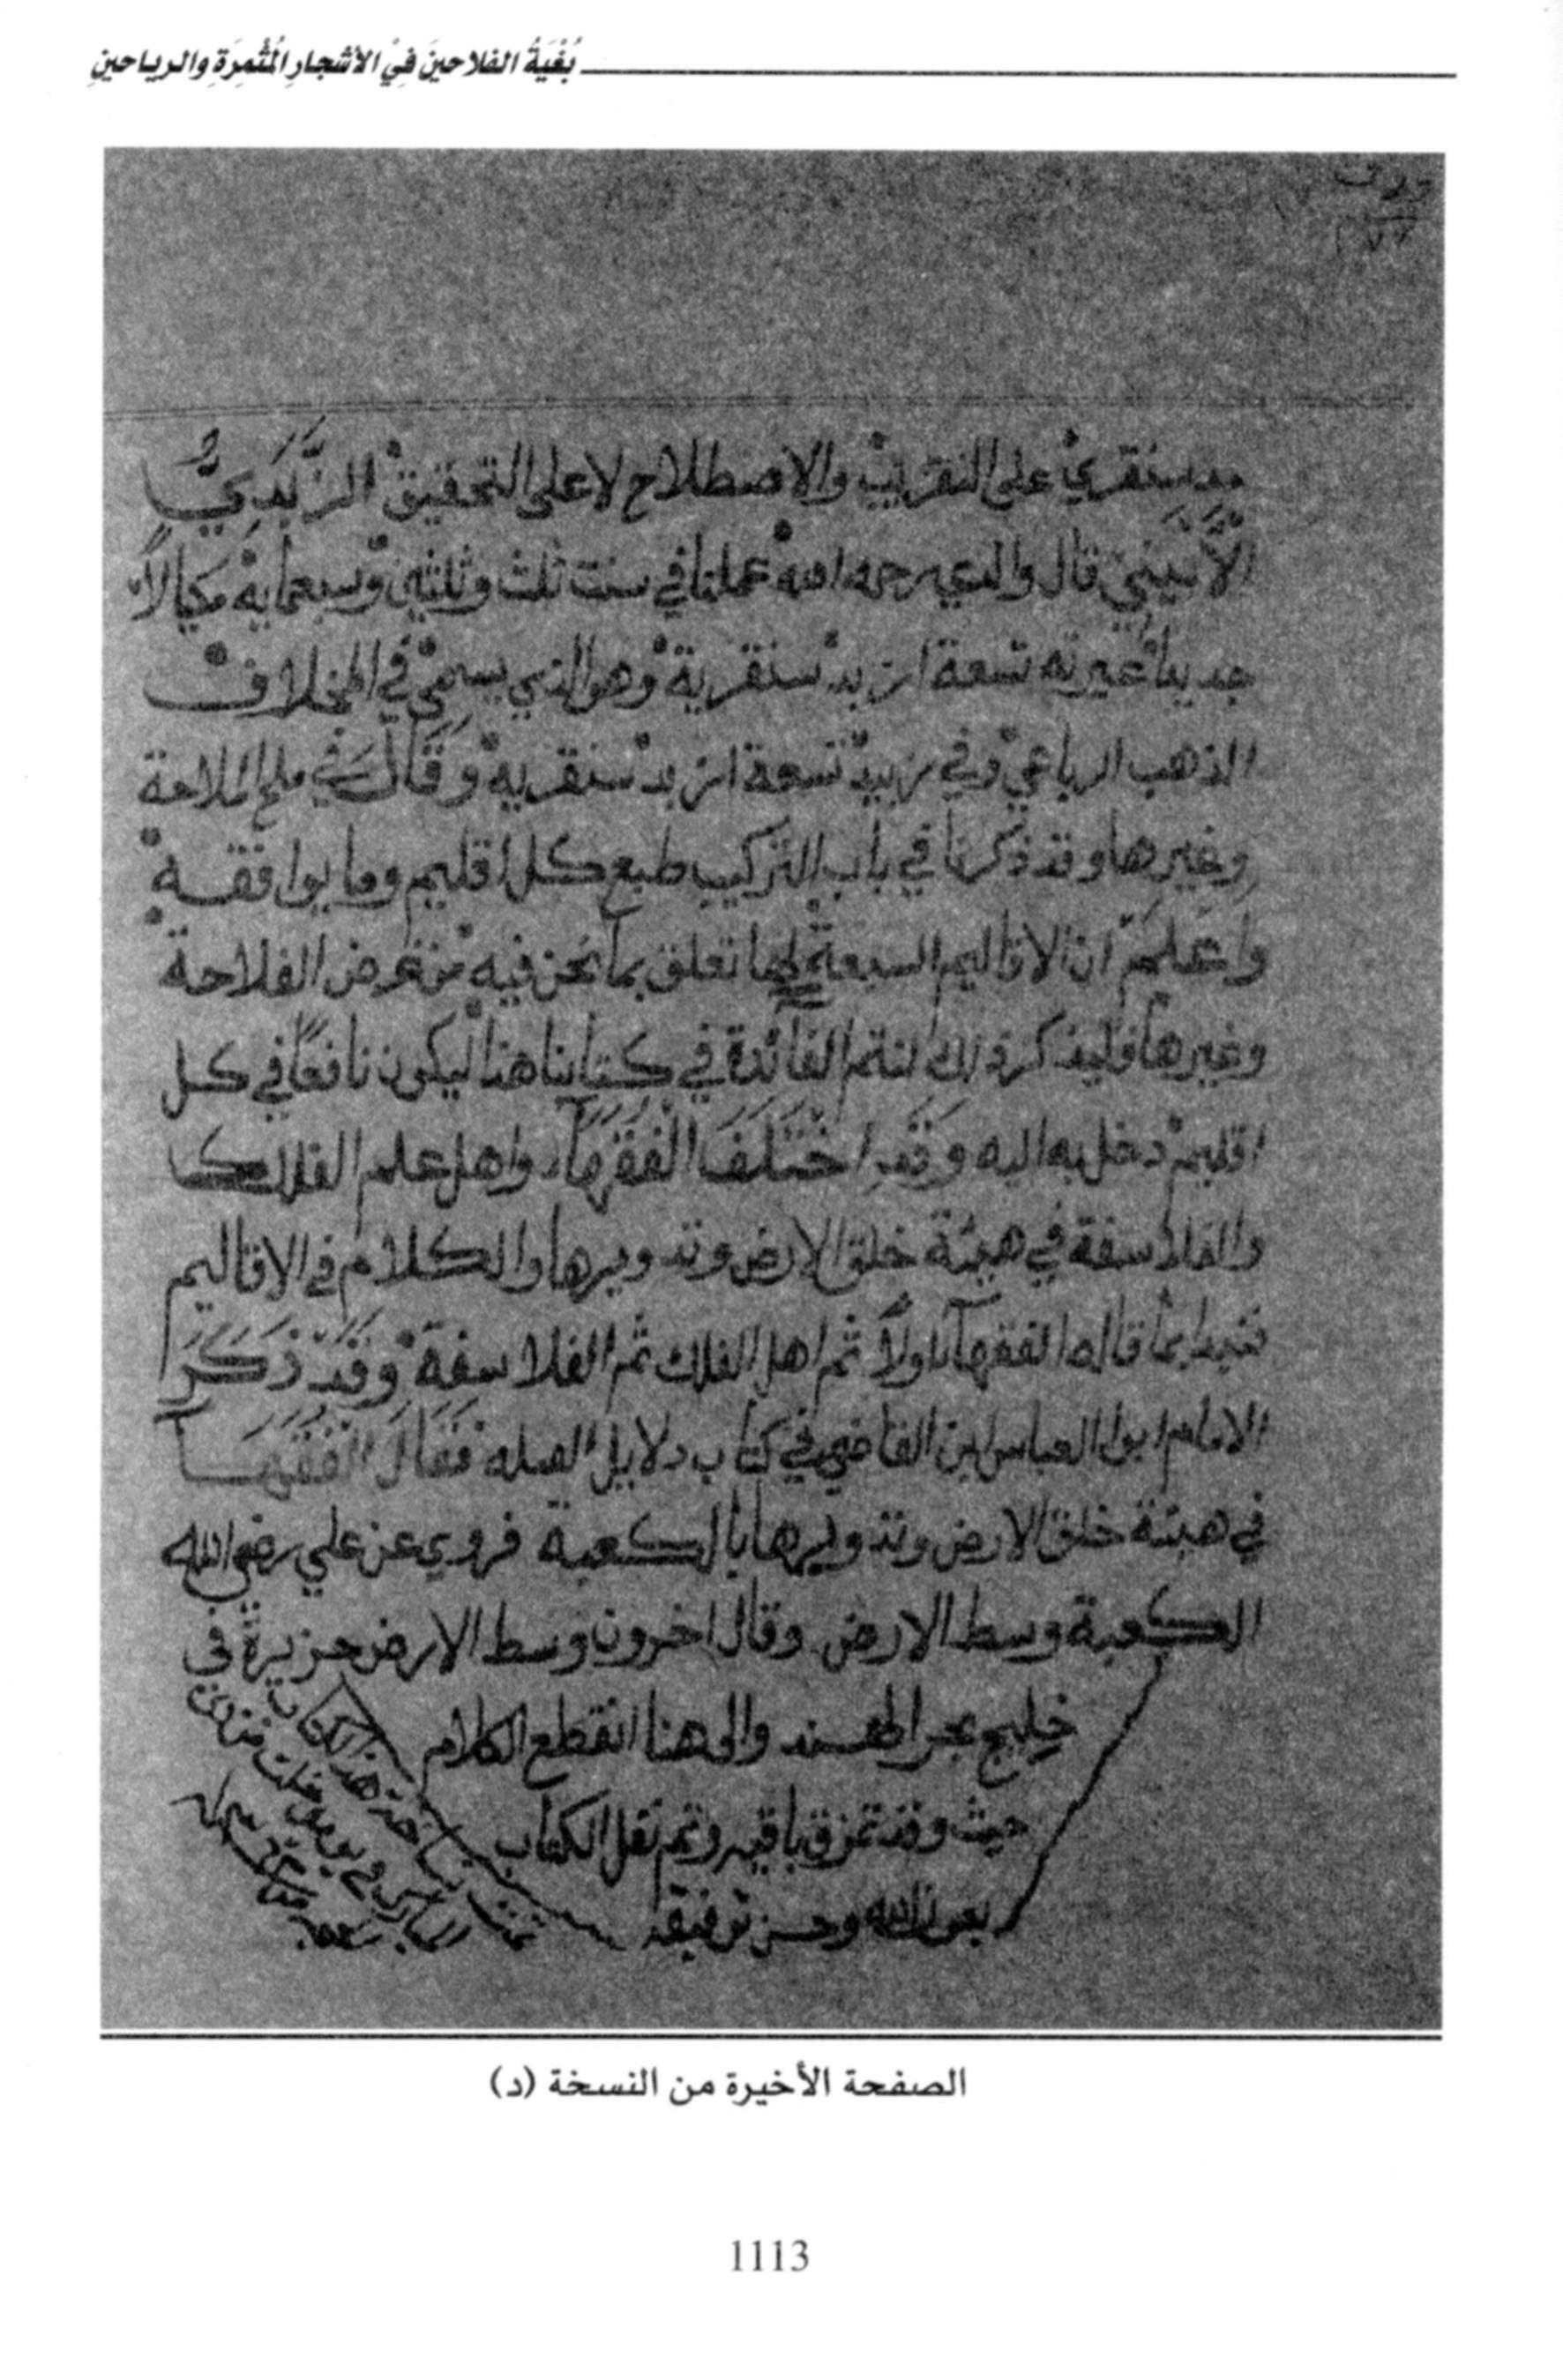 بُغْيَةُ الفلاحينَ فِيْ الأشجارِ المُثْمِرَةِ والرياحينِ
ورق
٢٧٢
مد سنقري على التقريب والاصطلاح لا على التحقيق الزَّبَدِيُّ
قال والدي رحمه الله عملنا في سنت ثلث وثلثين وسبعمايه مكيالاً
جديداً عيرته تسعة ازبد سنقرية وهو الذي يسمى في المخلاف
الذهب الرباعي وفي زبيد تسعة ازبد سنقريه وَقَالَ في ملح الملاحة
وغيرها وقد ذكرنا في باب التركيب طبع كل اقليم وما يوافقه
وَاعْلَمْ ان الاقاليم السبعة لها تعلق بما نحن فيه من غرض الفلاحة
وغيرها فليذكر ذلك لتتم الفآئدة في كتابنا هذا ليكون نافعًا في كل
اقليم دخل به اليه وَقَدِ اخْتَلَفَ الْفُقَهَآء واهل علم الفلك
والفلاسفة في هيئة خلق الارض وتدويرها والكلام في الاقاليم
فنبدا بما قاله الفقهآء اولاً ثم اهل الفلك ثم الفلاسفة وَقَدْ ذَكَرَ
الامام ابوا العباس ابن القاضي في كتاب دلايل القبله فَقَالَ الْفُقَهَا
في هيئة خلق الارض وتدويرها بالكعبة فروي عن علي رضي الله
الكعبة وسط الارض وقال اخرون وسط الارض جزيرة في
خليج بحر الهند والى هنا انقطع الكلام
حيث وقد تمزق باقيه وتم نقل الكتاب
بعون الله وحسن توفيقه
تمت نساخة هذا الكتاب
في يوم
الصفحة الأخيرة من النسخة (د)
1113